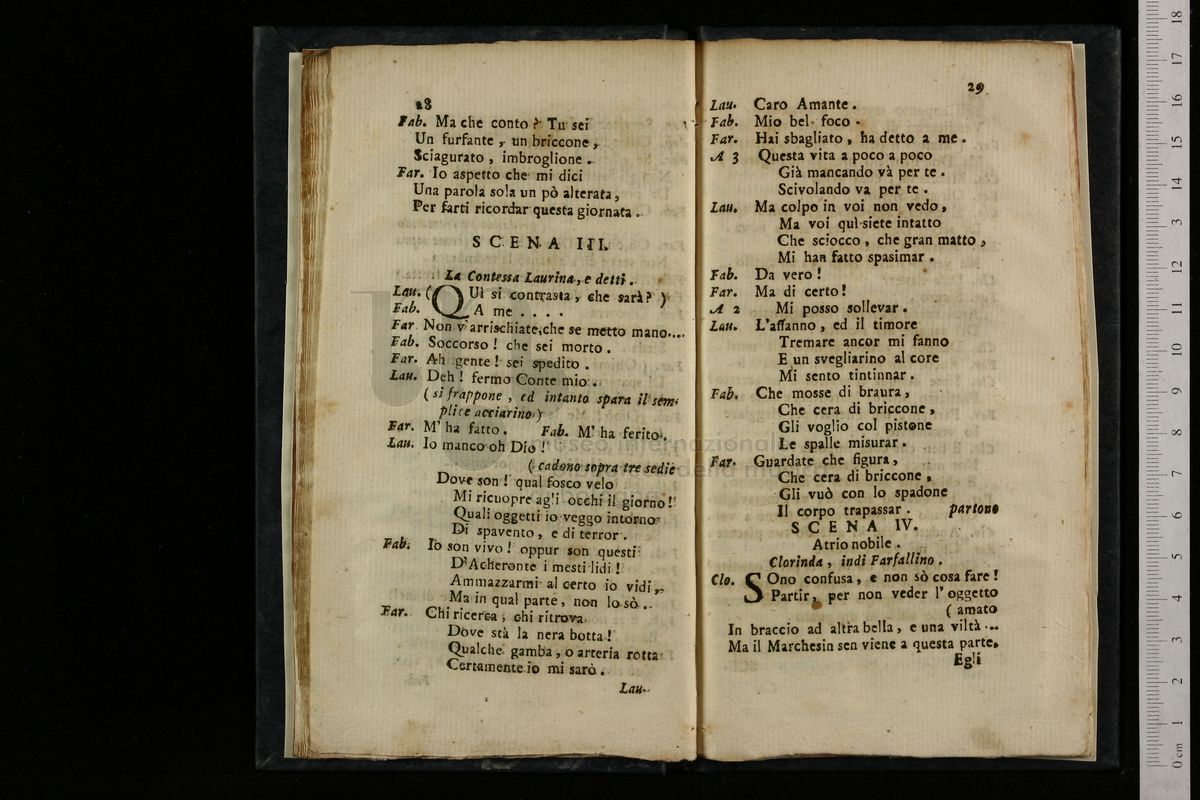 28
Fab. Ma che conto? Tu sei
Un furfante, un briccone,
Sciagurato, imbroglione.
Far. Io aspetto che mi dici
Una parola sola un pò alterata,
Per farti ricordar questa giornata.
SCENA III.
La Contessa Laurina, e detti.
Lau. (QUì si contrasta, che sarà?)
Fab. A me . . . .
Far. Non v'arrischiate, che se metto mano....
Fab. Soccorso! che sei morto.
Far. Ah gente! sei spedito.
Lau. Deh! fermo Conte mio.
(si frappone, ed intanto spara il sem-
plice acciarino)
Far. M'ha fatto. Fab. M'ha ferito.
Lau. Io manco oh Dio!
(cadono sopra tre sedie
Dove son! qual fosco velo
Mi ricuopre agl'i occhi il giorno!
Quali oggetti io veggo intorno
Di spavento, e di terror.
Fab. Io son vivo! oppur son questi
D'Acheronte i mesti lidi!
Ammazzarmi al certo io vidi,
Ma in qual parte, non lo sò..
Far. Chi ricerca, chi ritrova
Dove stà la nera botta!
Qualche gamba, o arteria rotta
Certamente io mi sarò.
Lau.
29
Lau. Caro Amante.
Fab. Mio bel foco.
Far. Hai sbagliato, ha detto a me.
A 3 Questa vita a poco a poco
Già mancando và per te.
Scivolando va per te.
Lau. Ma colpo in voi non vedo,
Ma voi quì siete intatto
Che sciocco, che gran matto,
Mi han fatto spasimar.
Fab. Da vero!
Far. Ma di certo!
A 2 Mi posso sollevar.
Lau. L'affanno, ed il timore
Tremare ancor mi fanno
E un svegliarino al core
Mi sento tintinnar.
Fab. Che mosse di braura,
Che cera di briccone,
Gli voglio col pistone
Le spalle misurar.
Far. Guardate che figura,
Che cera di briccone,
Gli vuò con lo spadone
Il corpo trapassar. partono
SCENA IV.
Atrio nobile.
Clorinda, indi Farfallino.
Clo. SOno confusa, e non sò cosa fare!
Partir, per non veder l'oggetto
(amato
In braccio ad altra bella, e una viltà ...
Ma il Marchesin sen viene a questa parte.
Egli